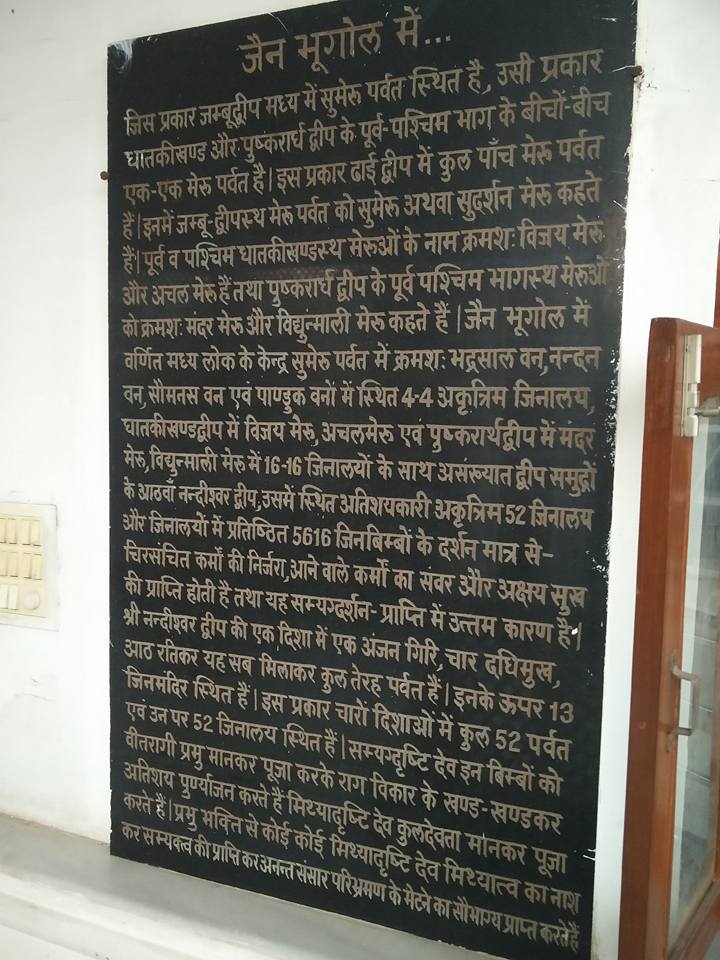 जैन भूगोल में...
जिस प्रकार जम्बूद्वीप मध्य में सुमेरू पर्वत स्थित है, उसी प्रकार
धातकीखण्ड और पुष्करार्ध द्वीप के पूर्व-पश्चिम भाग के बीचों-बीच
एक-एक मेरू पर्वत है | इस प्रकार ढाई द्वीप में कुल पाँच मेरू पर्वत
हैं | इनमें जम्बू-द्वीपस्थ मेरू पर्वत को सुमेरू अथवा सुदर्शन मेरू कहते
हैं | पूर्व व पश्चिम धातकीखण्डस्थ मेरूओं के नाम क्रमशः विजय मेरू
और अचल मेरू हैं तथा पुष्करार्ध द्वीप के पूर्व पश्चिम भागस्थ मेरूओं
को क्रमशः मंदर मेरू और विद्युन्माली मेरू कहते हैं | जैन भूगोल में
वर्णित मध्य लोक के केन्द्र सुमेरू पर्वत में क्रमशः भद्रसाल वन, नन्दन
वन, सौमनस वन एवं पाण्डुक वनों में स्थित 4-4 अकृत्रिम जिनालय,
धातकीखण्डद्वीप में विजय मेरू, अचलमेरू एवं पुष्करार्थद्वीप में मंदर
मेरू, विद्युन्माली मेरू में 16-16 जिनालयों के साथ असंख्यात द्वीप समुद्रों
के आठवाँ नन्दीश्वर द्वीप, उसमें स्थित अतिशयकारी अकृत्रिम 52 जिनालय
और जिनालयों में प्रतिष्ठित 5616 जिनबिम्बों के दर्शन मात्र से-
चिरसंचित कर्मों की निर्जरा, आने वाले कर्मों का संवर और अक्षय सुख
की प्राप्ति होती है तथा यह सम्यग्दर्शन- प्राप्ति में उत्तम कारण है |
श्री नन्दीश्वर द्वीप की एक दिशा में एक अंजन गिरि, चार दधिमुख,
आठ रतिकर यह सब मिलाकर कुल तेरह पर्वत हैं | इनके ऊपर 13
जिनमंदिर स्थित हैं | इस प्रकार चारों दिशाओं में कुल 52 पर्वत
एवं उन पर 52 जिनालय स्थित हैं | सम्यग्दृष्टि देव इन बिम्बों को
वीतरागी प्रभु मानकर पूजा करके राग विकार के खण्ड-खण्डकर
अतिशय पुर्ण्याजन करते हैं मिथ्यादृष्टि देव कुलदेवता मानकर पूजा
करते हैं | प्रभु भक्ति से कोई कोई मिथ्यादृष्टि देव मिथ्यात्व का नाश
कर सम्यक्त्व की प्राप्ति कर अनन्त संसार परिभ्रमण के मेटने का सौभाग्य प्राप्त करते हैं